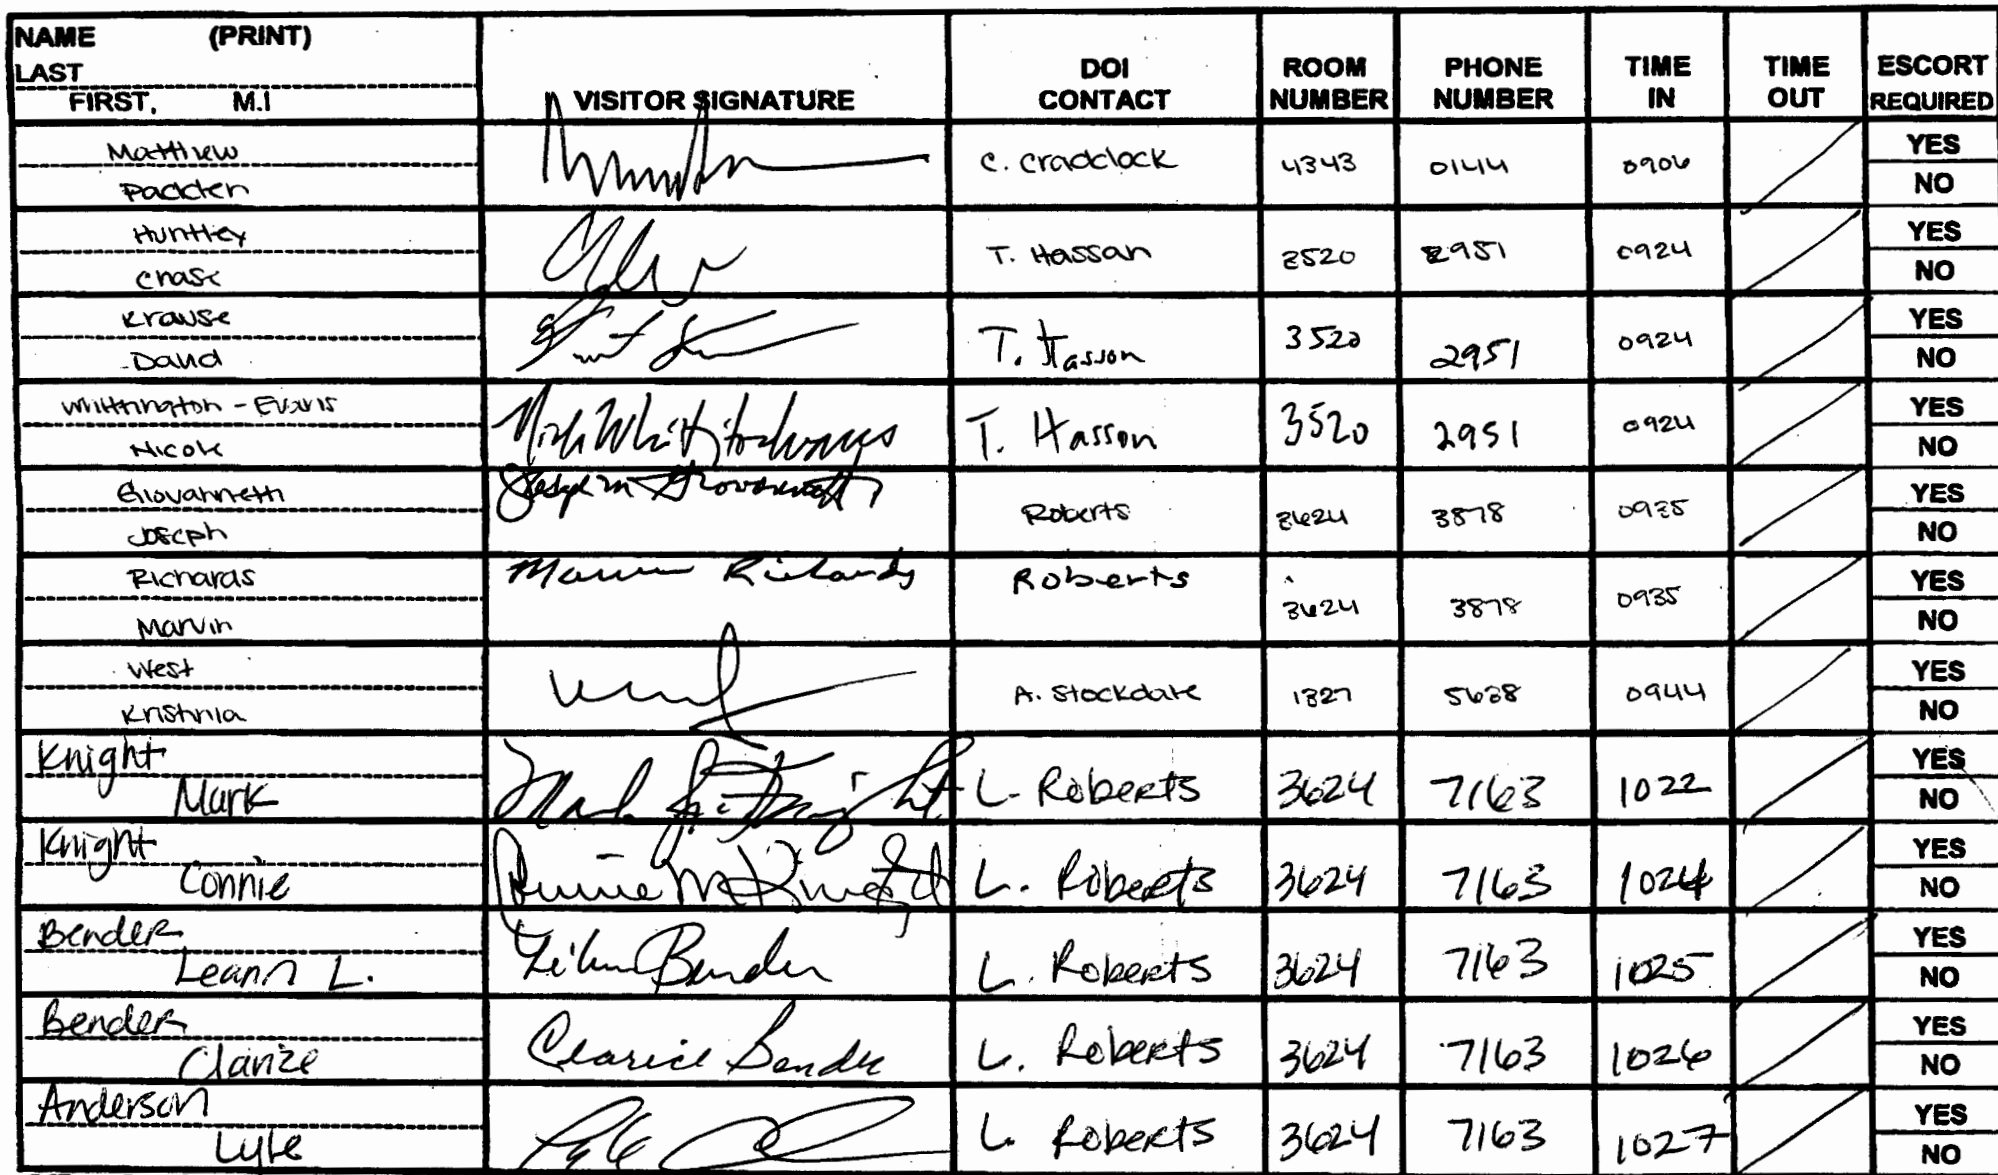 NAME (PRINT)
LAST
FIRST, M.I
VISITOR SIGNATURE
DOI CONTACT
ROOM NUMBER
PHONE NUMBER
TIME IN
TIME OUT
ESCORT REQUIRED
Matthew
Padden
C. Craddock 4343 0144 0906
YES
NO
Huntley
Chase
T. Hassan 3520 2951 0924
YES
NO
Krause
David
T. Hasson 3520 2951 0924
YES
NO
Whittington - Evans
Nicole
T. Hasson 3520 2951 0924
YES
NO
Giovannetti
Joseph
Roberts 3624 3878 0935
YES
NO
Richards
Marvin
Marvin Richards
Roberts 3624 3878 0935
YES
NO
West
Kristina
A. Stockdale 1327 5638 0944
YES
NO
Knight
Mark
L. Roberts 3624 7163 1022
YES
NO
Knight
Connie
Connie M Knight
L. Roberts 3624 7163 1024
YES
NO
Bender
Leann L.
Bender
L. Roberts 3624 7163 1025
YES
NO
Bender
Clarice
Clarice Bender
L. Roberts 3624 7163 1026
YES
NO
Anderson
Lyle
L. Roberts 3624 7163 1027
YES
NO